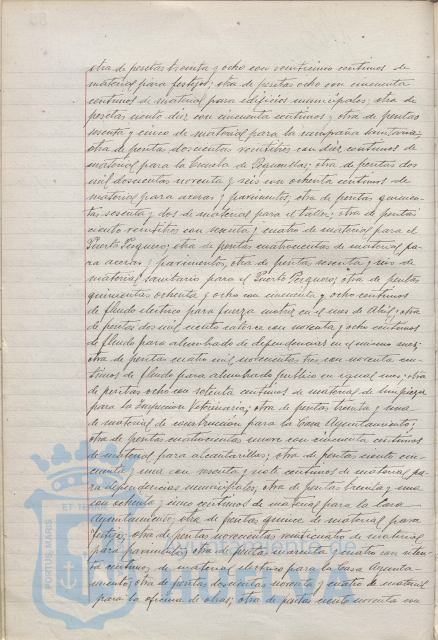 otra de pesetas treinta y ocho con veinticinco centimos de
material para festejos; otra de pesetas ocho con cincuenta
centimos de material para edificios municipales; otra de
pesetas ciento diez con cincuenta centimos y otra de pesetas
y cinco de material para la campaña Sanitaria;
otra de pesetas doscientas veintitres con diez centimos de
material para la Escuela de; otra de pesetas dos
mil doscientas noventa y seis con ochenta centimos de
material para aceras y pavimentos; otra de pesetas quinien-
tas sesenta y dos de material para el taller; otra de pesetas
ciento veintitres con sesenta y cuatro de material para el
Puerto Pesquero; otra de pesetas cuatrocientas de material pa-
ra aceras y pavimentos; otra de pesetas sesenta y seis de
material sanitario para el Puerto Pesquero; otra de pesetas
quinientas ochenta y ocho con cincuenta y ocho centimos
de fluido electrico para fuerza motriz en el mes de Abril; otra
de pesetas dos mil ciento catorce con noventa y ocho centimos
de fluido para alumbrado de dependencias en el mismo mes;
otra de pesetas cuatro mil novecientas tres con noventa cen-
timos de fluido para alumbrado publico en igual mes; otra
de pesetas ocho con setenta centimos de material de limpieza
para la Inspeccion Veterinaria; otra de pesetas treinta y una
de material de construccion para la Casa Ayuntamiento;
otra de pesetas cuatrocientas nueve con cincuenta centimos
de material para alcantarillas; otra de pesetas ciento cin-
cuenta y una con y siete centimos de material pa-
ra dependencias municipales; otra de pesetas treinta y una
con ochenta y cinco centimos de material para la Casa
Ayuntamiento; otra de pesetas quince de material para
festejos; otra de pesetas novecientas de material
para; otra de pesetas y cuatro con
ta centimos de material electrico para la Casa Ayunta-
miento; otra de pesetas doscientas noventa y cuatro de material
para la oficina de obras; otra de pesetas ciento noventa con
PORTUS MARIS ET TE